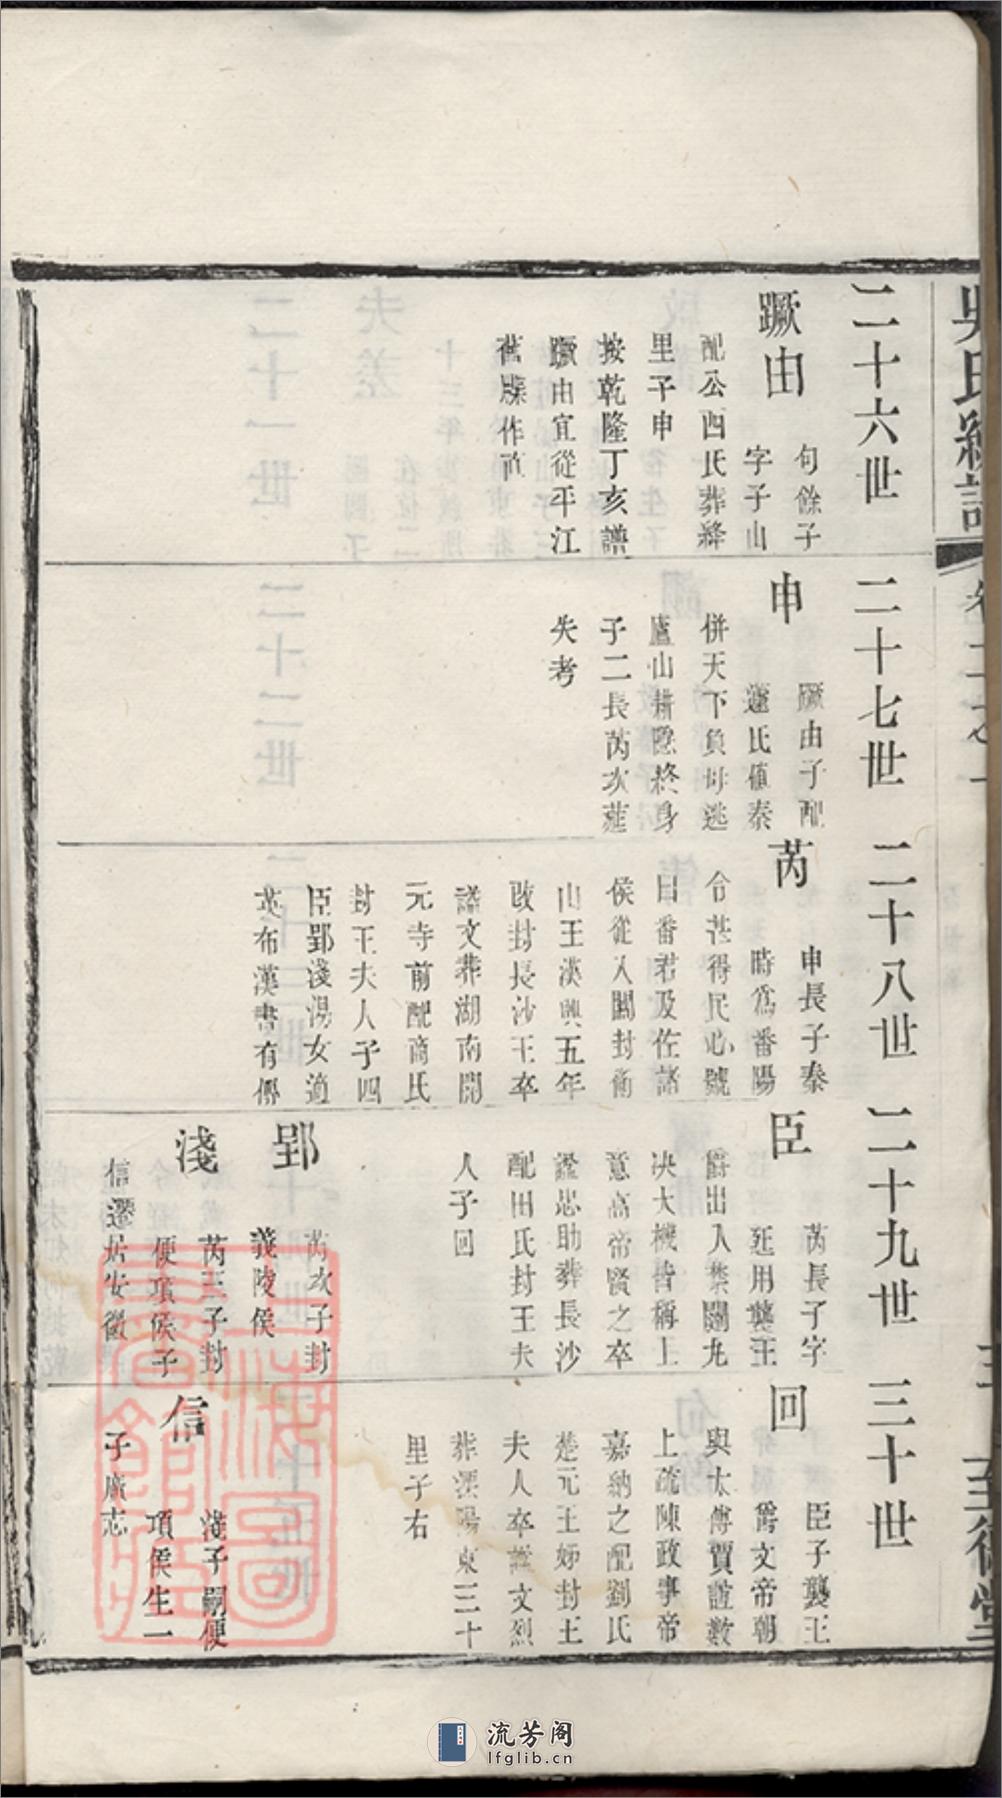 吳氏
二十六世
蹶由
句餘子
字子山
配公四氏葬絳
里子申
按乾隆丁亥譜
蹶由宜從平江
舊牒作
二十七世
申
蹶由子配
蘧氏値秦
併天下負母逃
廬山耕隱終身
子二長芮次
失考
二十八世
芮
申長子秦
時爲番陽
令甚得民心號
曰番君及佐諸
侯從入關封衡
山王漢興五年
改封長沙王卒
諡文葬湖南開
元寺前配商氏
封王夫人子四
臣郢淺湯女適
英布漢書有傳
二十九世
臣
芮長子字
延用襲王
爵出入禁闥九
决大機皆稱上
意高帝賢之卒
諡忠助葬長沙
配田氏封王夫
人子回
郢
芮次子封
義陵侯
淺
芮三子封
便項侯子
信遷居安徽
三十世
回
臣子襲王
爵文帝朝
與太傅賈誼數
上疏陳政事帝
嘉納之配劉氏
楚元王姊封王
夫人卒諡文烈
葬溧陽東三十
里子右
信
淺子嗣便
項侯生一
子廣志
至德堂
上海圖書館藏
流芳阁
lfglib.cn